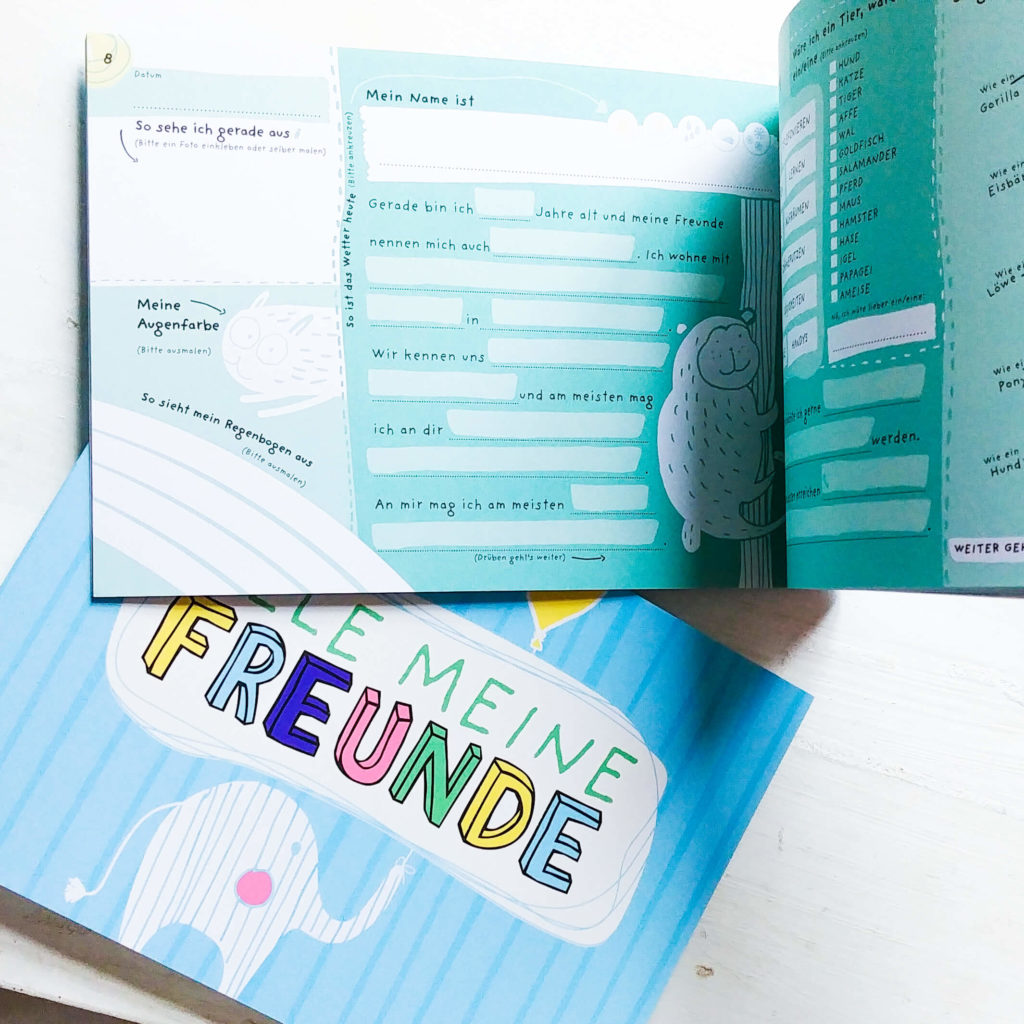 8
Datum
So sehe ich gerade aus
(Bitte ein Foto einkleben oder selber malen)
Meine
Augenfarbe
(Bitte ausmalen)
So sieht mein Regenbogen aus
(Bitte ausmalen)
So ist das Wetter heute (Bitte ankreuzen)
Mein Name ist
Gerade bin ich Jahre alt und meine Freunde
nennen mich auch . Ich wohne mit
in
Wir kennen uns
und am meisten mag
ich an dir
.
An mir mag ich am meisten
.
(Drüben geht's weiter)
ein Tier, wäre
ein/eine (Bitte ankreuzen)
HUND
KATZE
TIGER
AFFE
WAL
GOLDFISCH
SALAMANDER
PFERD
MAUS
HAMSTER
HASE
IGEL
PAPAGEI
AMEISE
Nö, ich wäre lieber ein/eine:
LERNEN
HANDYS
gerne
werden.
.
Wie ein
Gorilla
Wie ein
Eisbär
Wie ei
Löwe
Wie ei
Pony
Wie ein
Hund
WEITER GEH
LE MEINE
FREUNDE